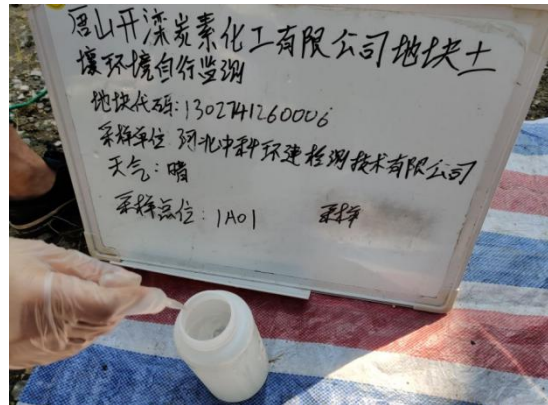 唐山开滦炭素化工有限公司地块土
壤环境自行监测
地块代码:1302741260006
采样单位 河北中科环建检测技术有限公司
天气:晴
采样点位:1A01 采样